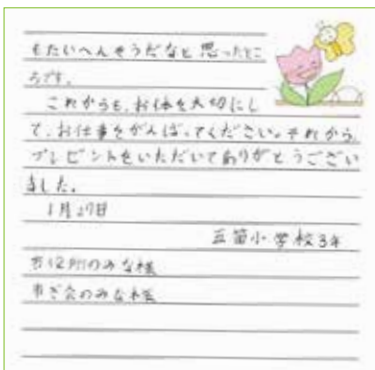 もたいへんそうだなと思ったとこ
ろです。
これからも、お体を大切にし
て、お仕事をがんばってください。それから、
プレゼントをいただいてありがとうござい
ました。
1月27日
小学校3年
市役所のみな様
市ぎ会のみな様